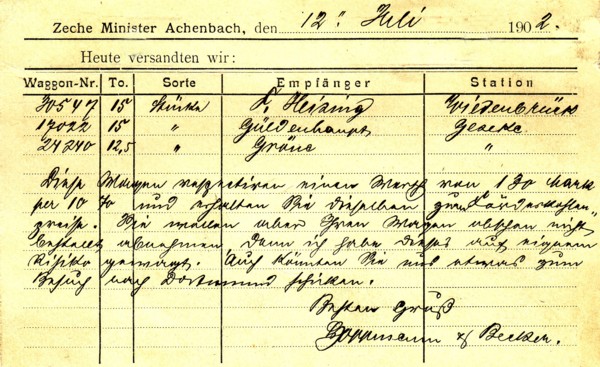 Zeche Minister Achenbach, den 12. Juli 1902.
Heute versandten wir:
Waggon-Nr. To. Sorte Empfänger Station
30547 15 Stücke F. Wiedenbrück
17022 15 " Güldenhaupt Geseke
24240 12,5 " Gröne "
Diese Wagen respectiren einen Werth von 130 Mark
per 10 To und erhalten Sie dieselben zum
preise. Sie wollen aber Ihren Wagen obschon nicht
bestellt abnehmen denn ich habe dieses auf eigenem
Risiko gewagt. Auch könnten Sie uns etwas zum
Besuch nach Dortmund schicken.
Besten Gruß
& Becker.